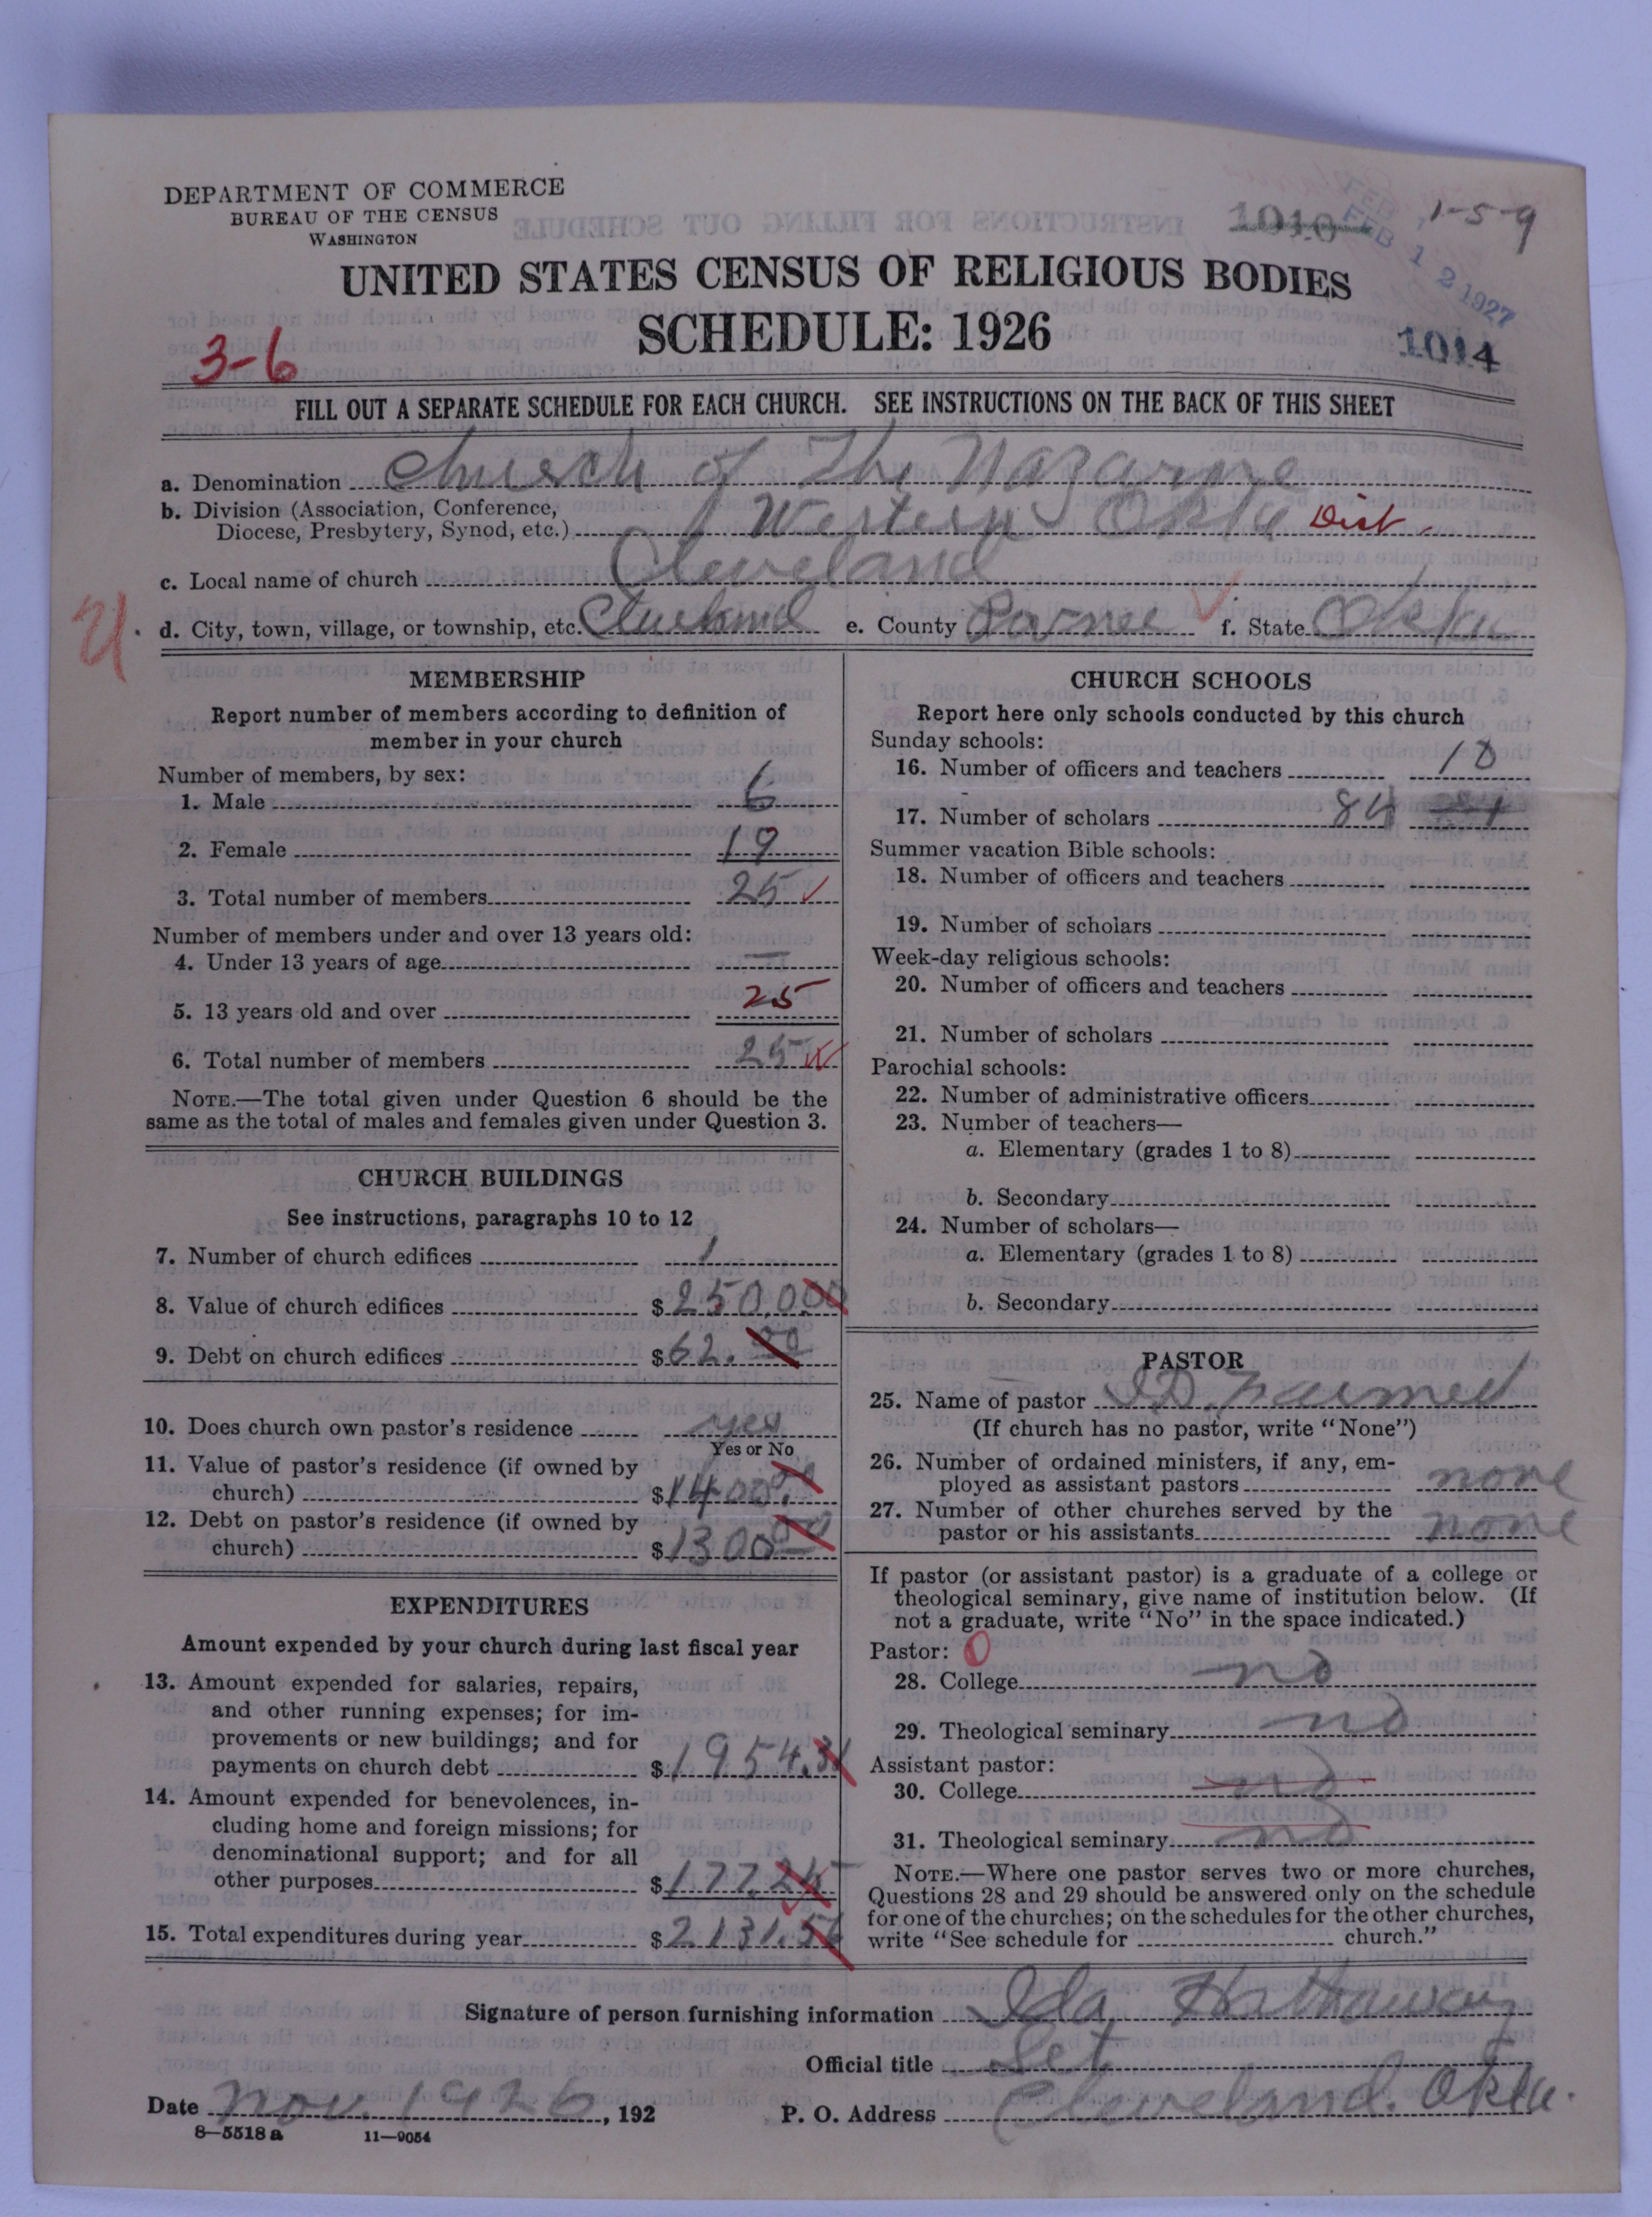 DEPARTMENT OF COMMERCE
BUREAU OF THE CENSUS
WASHINGTON
1010
1-5-9
FEB 12 1927
UNITED STATES CENSUS OF RELIGIOUS BODIES
SCHEDULE: 1926
3-6
1014
FILL OUT A SEPARATE SCHEDULE FOR EACH CHURCH. SEE INSTRUCTIONS ON THE BACK OF THIS SHEET
a. Denomination Church of The Nazarine
b. Division (Association, Conference,
Diocese, Presbytery, Synod, etc.) Western Okla Dist.
c. Local name of church Cleveland
d. City, town, village, or township, etc. Cleveland e. County Pawnee f. State Okla
MEMBERSHIP
Report number of members according to definition of
member in your church
Number of members, by sex:
1. Male 6
2. Female 19
3. Total number of members 25
Number of members under and over 13 years old:
4. Under 13 years of age —
5. 13 years old and over 25
6. Total number of members 25
NOTE.—The total given under Question 6 should be the
same as the total of males and females given under Question 3.
CHURCH BUILDINGS
See instructions, paragraphs 10 to 12
7. Number of church edifices 1
8. Value of church edifices $2500.00
9. Debt on church edifices $62.00
10. Does church own pastor's residence yes
Yes or No
11. Value of pastor's residence (if owned by
church) $1400.00
12. Debt on pastor's residence (if owned by
church) $1300.00
EXPENDITURES
Amount expended by your church during last fiscal year
13. Amount expended for salaries, repairs,
and other running expenses; for im-
provements or new buildings; and for
payments on church debt $1954.31
14. Amount expended for benevolences, in-
cluding home and foreign missions; for
denominational support; and for all
other purposes $177.25
15. Total expenditures during year $2131.56
CHURCH SCHOOLS
Report here only schools conducted by this church
Sunday schools:
16. Number of officers and teachers 10
17. Number of scholars 84
Summer vacation Bible schools:
18. Number of officers and teachers
19. Number of scholars
Week-day religious schools:
20. Number of officers and teachers
21. Number of scholars
Parochial schools:
22. Number of administrative officers
23. Number of teachers—
a. Elementary (grades 1 to 8)
b. Secondary
24. Number of scholars—
a. Elementary (grades 1 to 8)
b. Secondary
PASTOR
25. Name of pastor I.D. Farmer
(If church has no pastor, write "None")
26. Number of ordained ministers, if any, em-
ployed as assistant pastors none
27. Number of other churches served by the
pastor or his assistants none
If pastor (or assistant pastor) is a graduate of a college or
theological seminary, give name of institution below. (If
not a graduate, write "No" in the space indicated.)
Pastor: 0
28. College no
29. Theological seminary no
Assistant pastor:
30. College no
31. Theological seminary no
NOTE.—Where one pastor serves two or more churches,
Questions 28 and 29 should be answered only on the schedule
for one of the churches; on the schedules for the other churches,
write "See schedule for church."
Signature of person furnishing information Ida Hathaway
Official title Sct
Date Nov. 1926, 192 P. O. Address Cleveland. Okla.
8—5518 a 11—9054